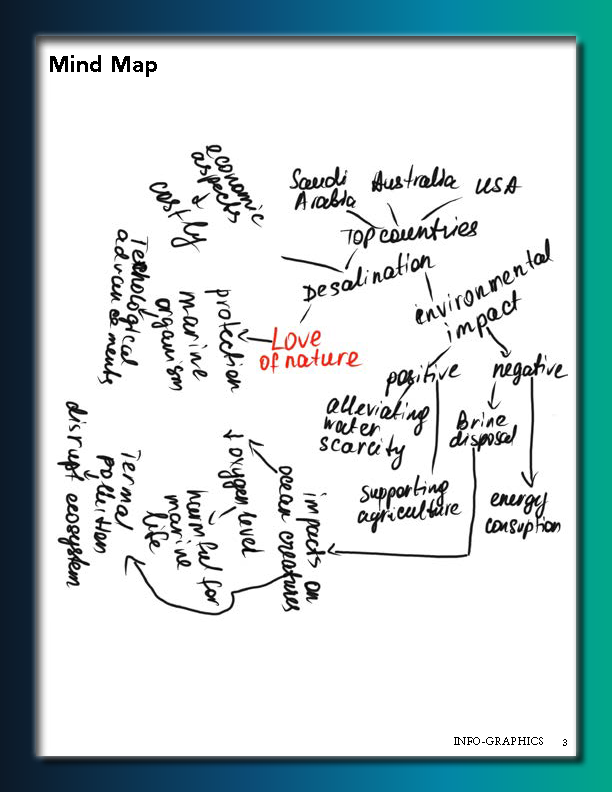 Mind Map
economic
aspects
costly
Saudi
Arabia
Australia
USA
Top countries
Desalination
environmental
impact
Technological
advancements
protection
marine
organism
Love
of nature
positive
negative
alleviating
water
scarcity
Brine
disposal
supporting
agriculture
energy
consuption
impacts on
ocean creatures
↓ oxygen level
harmful for
marine
life
Termal
pollution
disrupt ecosystem
INFO-GRAPHICS 3